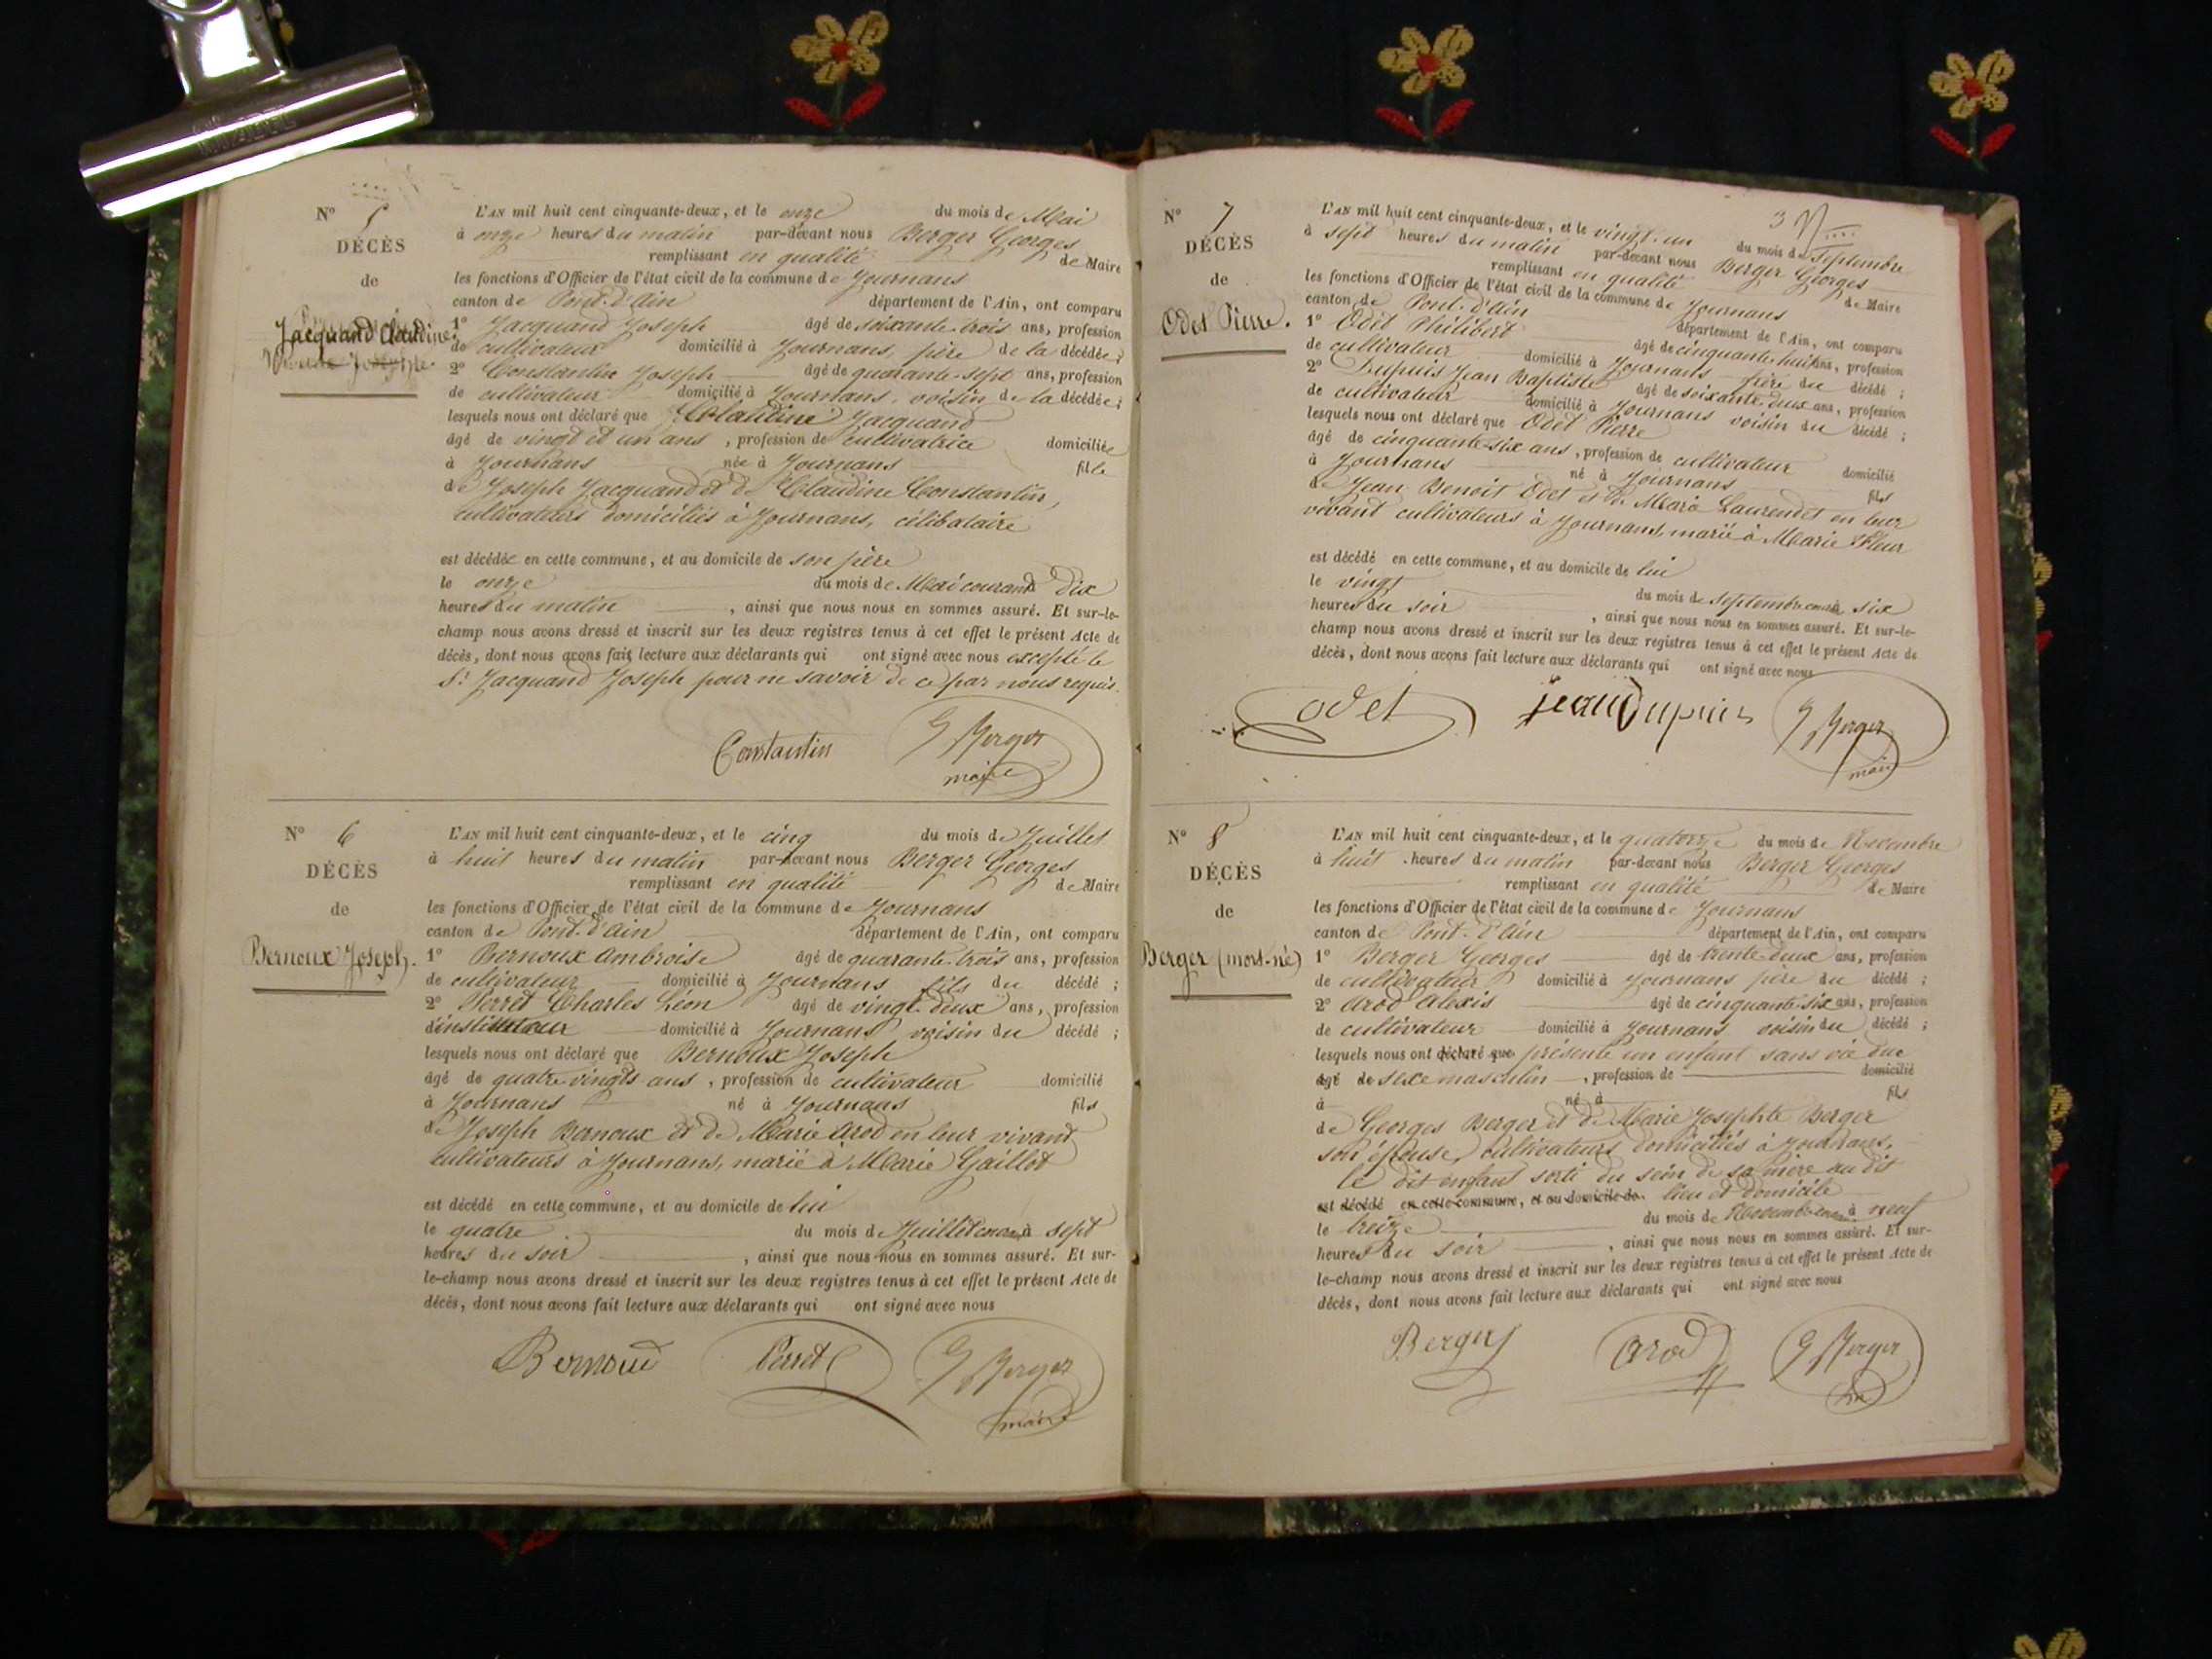 N° 5
DÉCÈS
de
Jacquand Claudine
L'AN mil huit cent cinquante-deux, et le onze du mois de Mai
à onze heures du matin par-devant nous Berger Georges
remplissant en qualité de Maire
les fonctions d'Officier de l'état civil de la commune de Journans
canton de Pont-d'ain département de l'Ain, ont comparu
1° Jacquand Joseph âgé de soixante-trois ans, profession
de cultivateur domicilié à Journans, père de la décédée ;
2° Constantin Joseph âgé de quarante-sept ans, profession
de cultivateur domicilié à Journans, voisin de la décédée ;
lesquels nous ont déclaré que Claudine Jacquand
âgé de vingt et un ans, profession de cultivatrice domiciliée
à Journans née à Journans fille
de Joseph Jacquand et de Claudine Constantin,
cultivateurs domiciliés à Journans, célibataire
est décédée en cette commune, et au domicile de son père
le onze du mois de Mai courant dix
heures du matin, ainsi que nous nous en sommes assuré. Et sur-le-
champ nous avons dressé et inscrit sur les deux registres tenus à cet effet le présent Acte de
décès, dont nous avons fait lecture aux déclarants qui ont signé avec nous excepté le
Sr Jacquand Joseph pour ne savoir de ce par nous requis.
Constantin G Berger
maire
N° 6
DÉCÈS
de
Bernoux Joseph.
L'AN mil huit cent cinquante-deux, et le cinq du mois de Juillet
à huit heures du matin par-devant nous Berger Georges
remplissant en qualité de Maire
les fonctions d'Officier de l'état civil de la commune de Journans
canton de Pont-d'ain département de l'Ain, ont comparu
1° Bernoux Ambroise âgé de quarante-trois ans, profession
de cultivateur domicilié à Journans fils du décédé ;
2° Perret Charles Léon âgé de vingt-deux ans, profession
d'instituteur domicilié à Journans voisin du décédé ;
lesquels nous ont déclaré que Bernoux Joseph
âgé de quatre vingts ans, profession de cultivateur domicilié
à Journans né à Journans fils
de Joseph Bernoux et de Marie Arod en leur vivant
cultivateurs à Journans, marié à Marie Gaillot
est décédé en cette commune, et au domicile de lui
le quatre du mois de Juillet courant à sept
heures du soir, ainsi que nous nous en sommes assuré. Et sur-
le-champ nous avons dressé et inscrit sur les deux registres tenus à cet effet le présent Acte de
décès, dont nous avons fait lecture aux déclarants qui ont signé avec nous
Bernoud Perret G Berger
maire
3
N° 7
DÉCÈS
de
Odet Pierre.
L'AN mil huit cent cinquante-deux, et le vingt-un du mois de Septembre
à sept heures du matin par-devant nous Berger Georges
remplissant en qualité de Maire
les fonctions d'Officier de l'état civil de la commune de Journans
canton de Pont-d'ain département de l'Ain, ont comparu
1° Odet Philibert âgé de cinquante-huit ans, profession
de cultivateur domicilié à Journans frère du décédé ;
2° Dupuis Jean Baptiste âgé de soixante-deux ans, profession
de cultivateur domicilié à Journans voisin du décédé ;
lesquels nous ont déclaré que Odet Pierre
âgé de cinquante-six ans, profession de cultivateur domicilié
à Journans né à Journans fils
de Jean Benoit Odet et de Marie Laurendet en leur
vivant cultivateurs à Journans, marié à Marie Fleur
est décédé en cette commune, et au domicile de lui
le vingt du mois de septembre courant à six
heures du soir, ainsi que nous nous en sommes assuré. Et sur-le-
champ nous avons dressé et inscrit sur les deux registres tenus à cet effet le présent Acte de
décès, dont nous avons fait lecture aux déclarants qui ont signé avec nous
odet jean Dupuis G Berger
maire
N° 8
DÉCÈS
de
Berger (mort-né)
L'AN mil huit cent cinquante-deux, et le quatorze du mois de Novembre
à huit heures du matin par-devant nous Berger Georges
remplissant en qualité de Maire
les fonctions d'Officier de l'état civil de la commune de Journans
canton de Pont-d'ain département de l'Ain, ont comparu
1° Berger Georges âgé de trente-deux ans, profession
de cultivateur domicilié à Journans père du décédé ;
2° Arod Alexis âgé de cinquante-six ans, profession
de cultivateur domicilié à Journans voisin du décédé ;
lesquels nous ont déclaré que présenté un enfant sans vie du
âgé de sexe masculin, profession de domicilié
à né à fils
de Georges Berger et de Marie Josephte Berger
son épouse, cultivateurs domiciliés à Journans,
le dit enfant sorti du sein de sa mère au dit
est décédé en cette commune, et au domicile de lieu et domicile
le treize du mois de Novembre courant à neuf
heures du soir, ainsi que nous nous en sommes assuré. Et sur-
le-champ nous avons dressé et inscrit sur les deux registres tenus à cet effet le présent Acte de
décès, dont nous avons fait lecture aux déclarants qui ont signé avec nous
Berger Arod G Berger